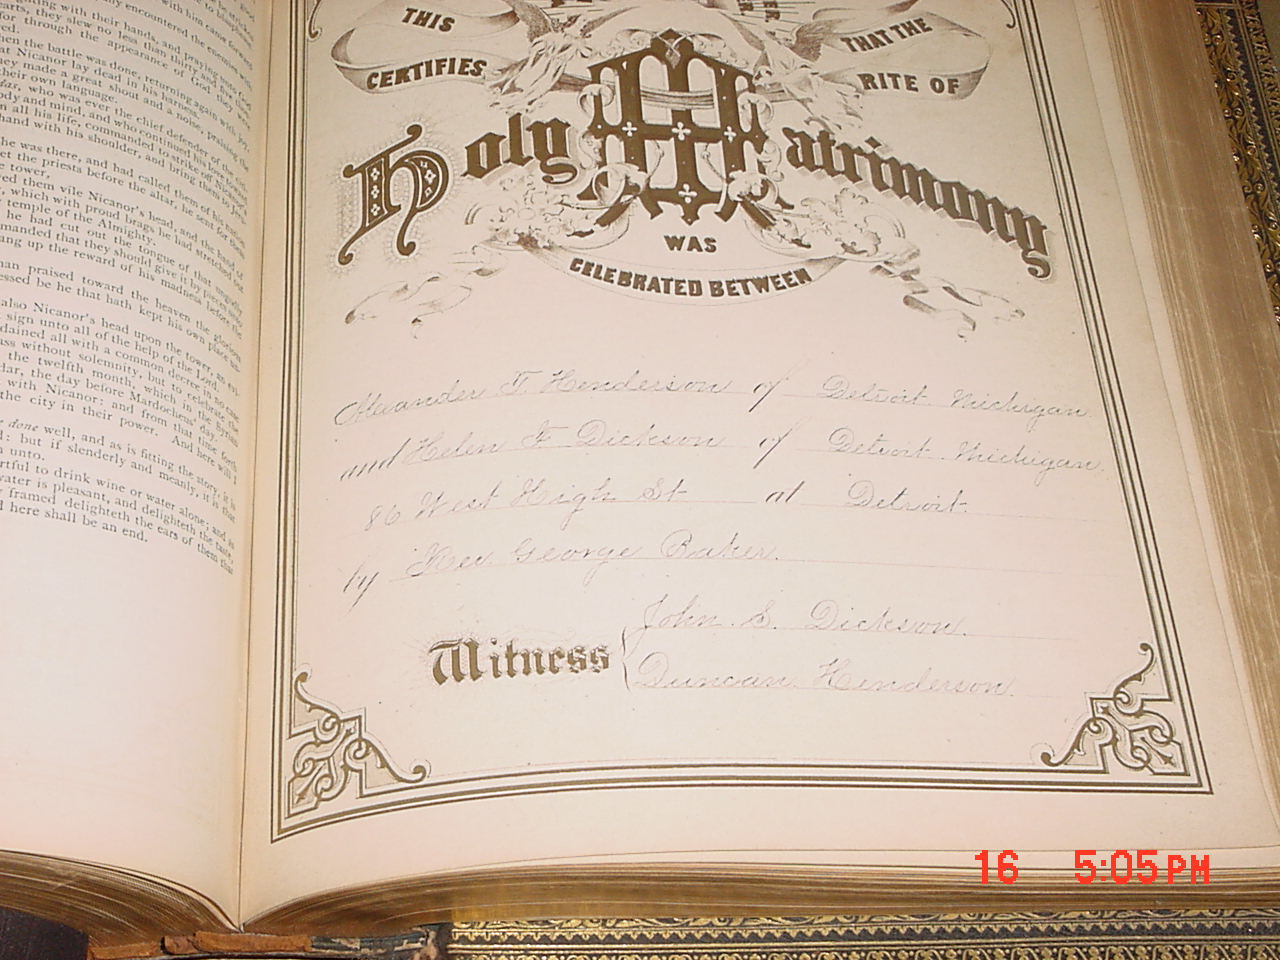 THIS
CERTIFIES
THAT THE
RITE OF
Holy Matrimony
WAS
CELEBRATED BETWEEN
Alexander F. Henderson of Detroit Michigan.
and Helen F Dickson of Detroit Michigan.
86 West High St at Detroit.
by Rev. George Baker.
Witness
John S. Dickson.
Duncan Henderson.
hen the battle was done, returning again with joy,
at Nicanor lay dead in his harness.
ey made a great shout and a noise, praising the
their own language.
who was ever the chief defender of the
body and mind, and who continued his love
all his life, commanded to strike off Nicanor's
hand with his shoulder, and bring them to
he was there, and had called them of his nation
et the priests before the altar, he sent for them
e tower,
wed them vile Nicanor's head, and the hand of
, which with proud brags he had stretched out
temple of the Almighty.
he had cut out the tongue of that ungodly
manded that they should give it by pieces unto
ang up the reward of his madness before the
man praised toward the heaven the glorious
essed be he that hath kept his own place
also Nicanor's head upon the tower, an
sign unto all of the help of the Lord.
dained all with a common decree in no case
ass without solemnity, but to celebrate the
the twelfth month, which in the Syrian
dar, the day before Mardocheus' day.
with Nicanor; and from that time forth
the city in their power. And here will I
done well, and as is fitting the story, it is
d: but if slenderly and meanly, it is that
n unto.
rtful to drink wine or water alone; and as
water is pleasant, and delighteth the taste,
y framed delighteth the ears of them that
d here shall be an end.
16 5:05PM